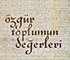 özgür
toplumun
değerleri